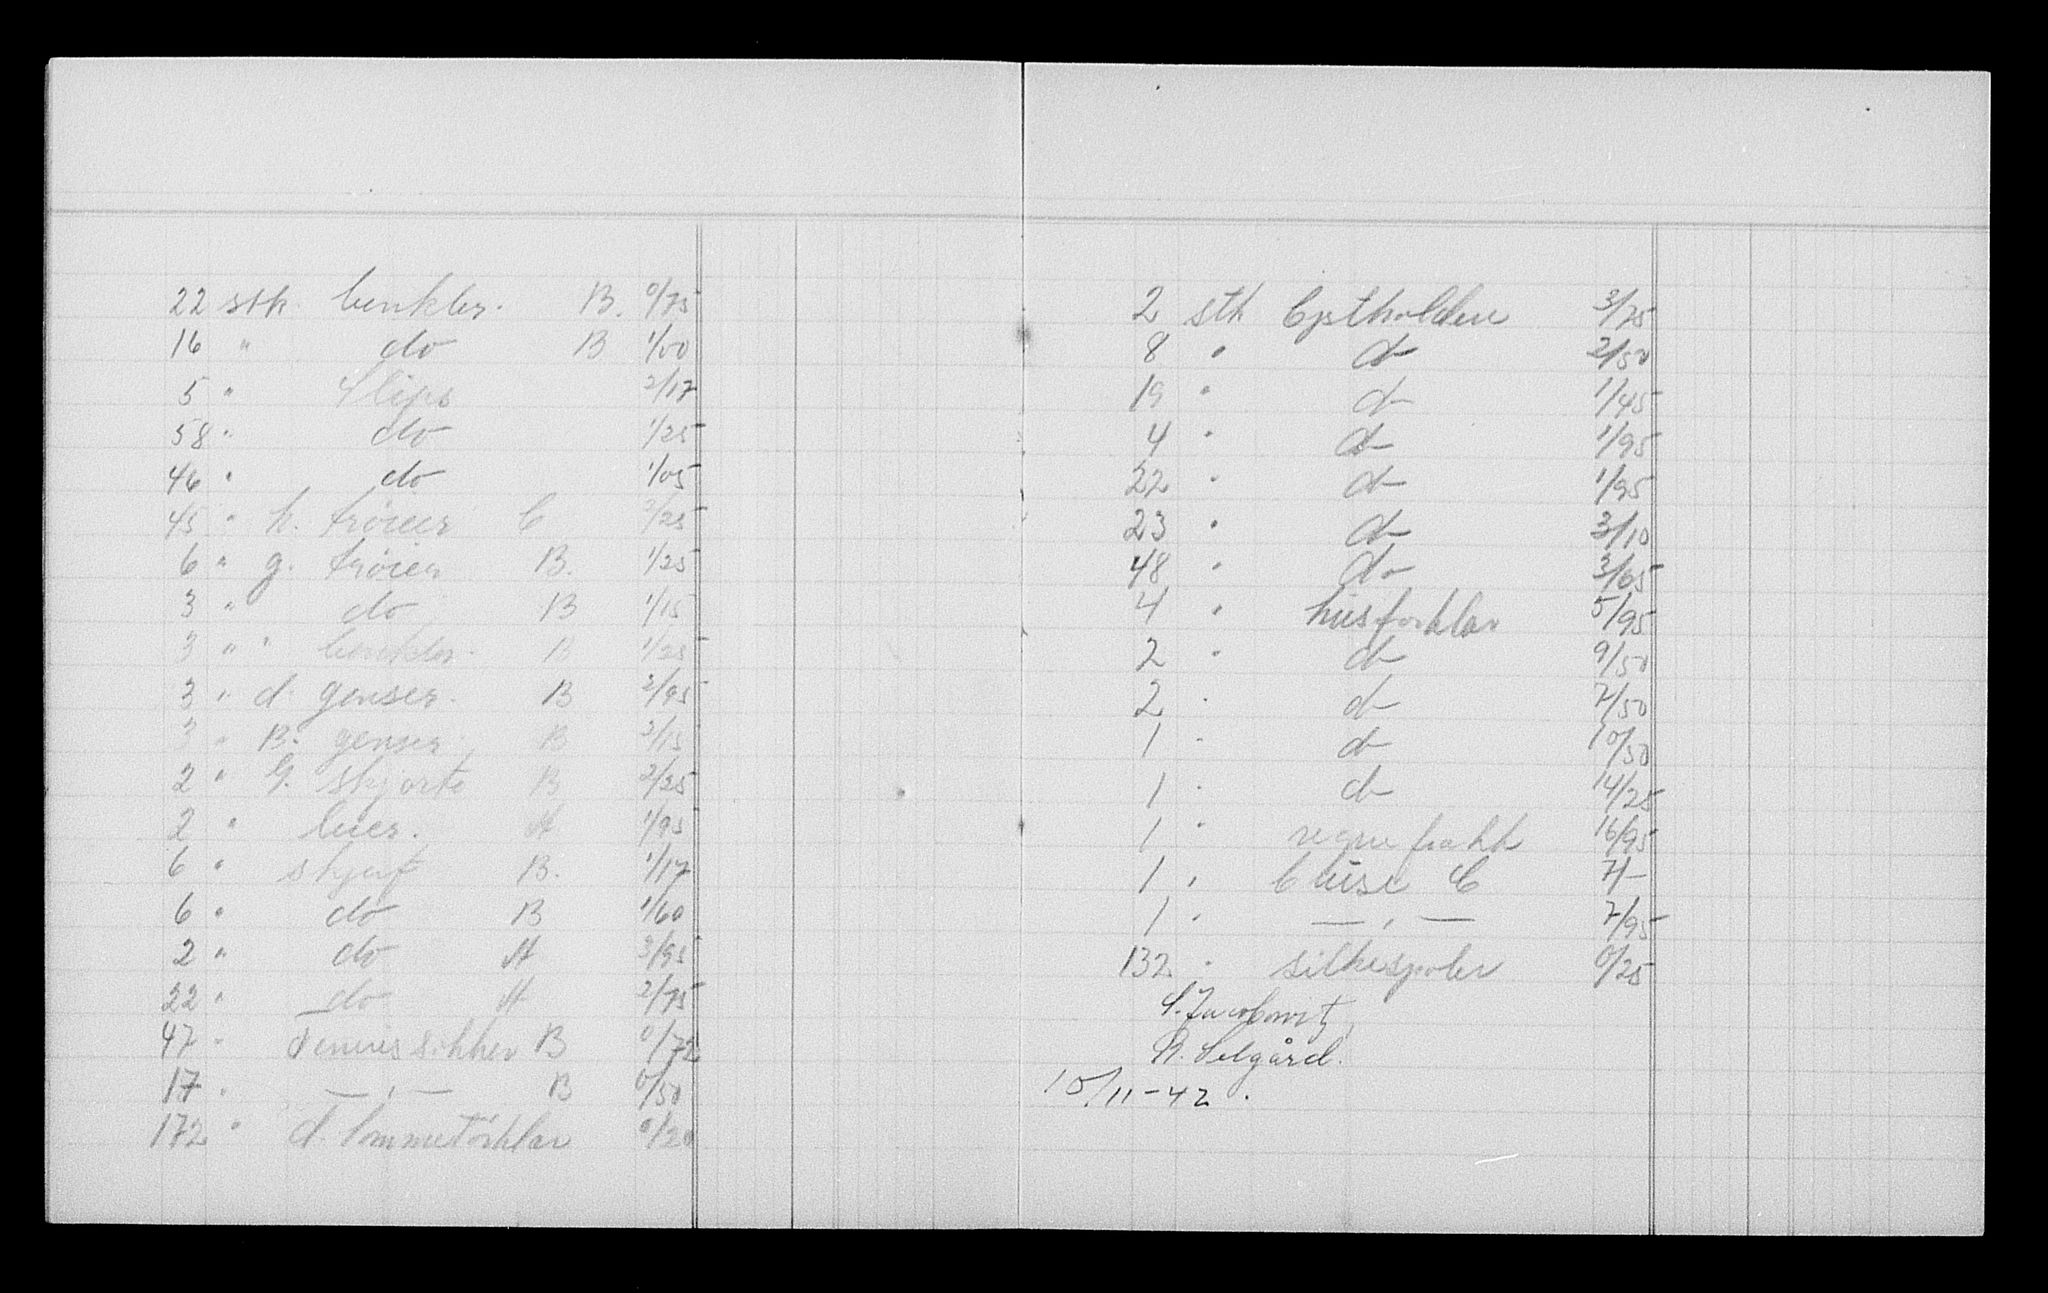 22 stk. benkler. B. 0/75
16 " do B 1/00
5 " Slips 2/17
58 " do 1/25
46 " do 1/05
45 " h. trøier C 2/25
6 " g. trøier B. 1/25
3 " do B 1/15
3 " " benkler. B 1/25
3 " d. genser. B 2/95
3 " B. genser. B 2/15
2 " G. skjorte B 2/25
2 " luer. A 1/95
6 " skjerf B. 1/17
6 " do B 1/60
2 " do A 3/95
22 " do A 2/75
47 " Tennissokker B 0/72
17 " — " — B 0/50
172 " d. Lommetörklær 0/20
2 stk Bystholdere 3/75
8 " do 2/50
19 " do 1/45
4 " do 1/95
22 " do 1/95
23 " do 3/10
48 " do 3/65
4 " husforklær 5/95
2 " do 9/50
2 " do 7/50
1 " do 10/50
1 " do 14/25
1 " regnefrakk 16/95
1 " bluse C 7/-
1 " — " — 7/95
132 " silkespoler 0/25
S. Jacobowitz,
R. Selgård.
10/11-42.